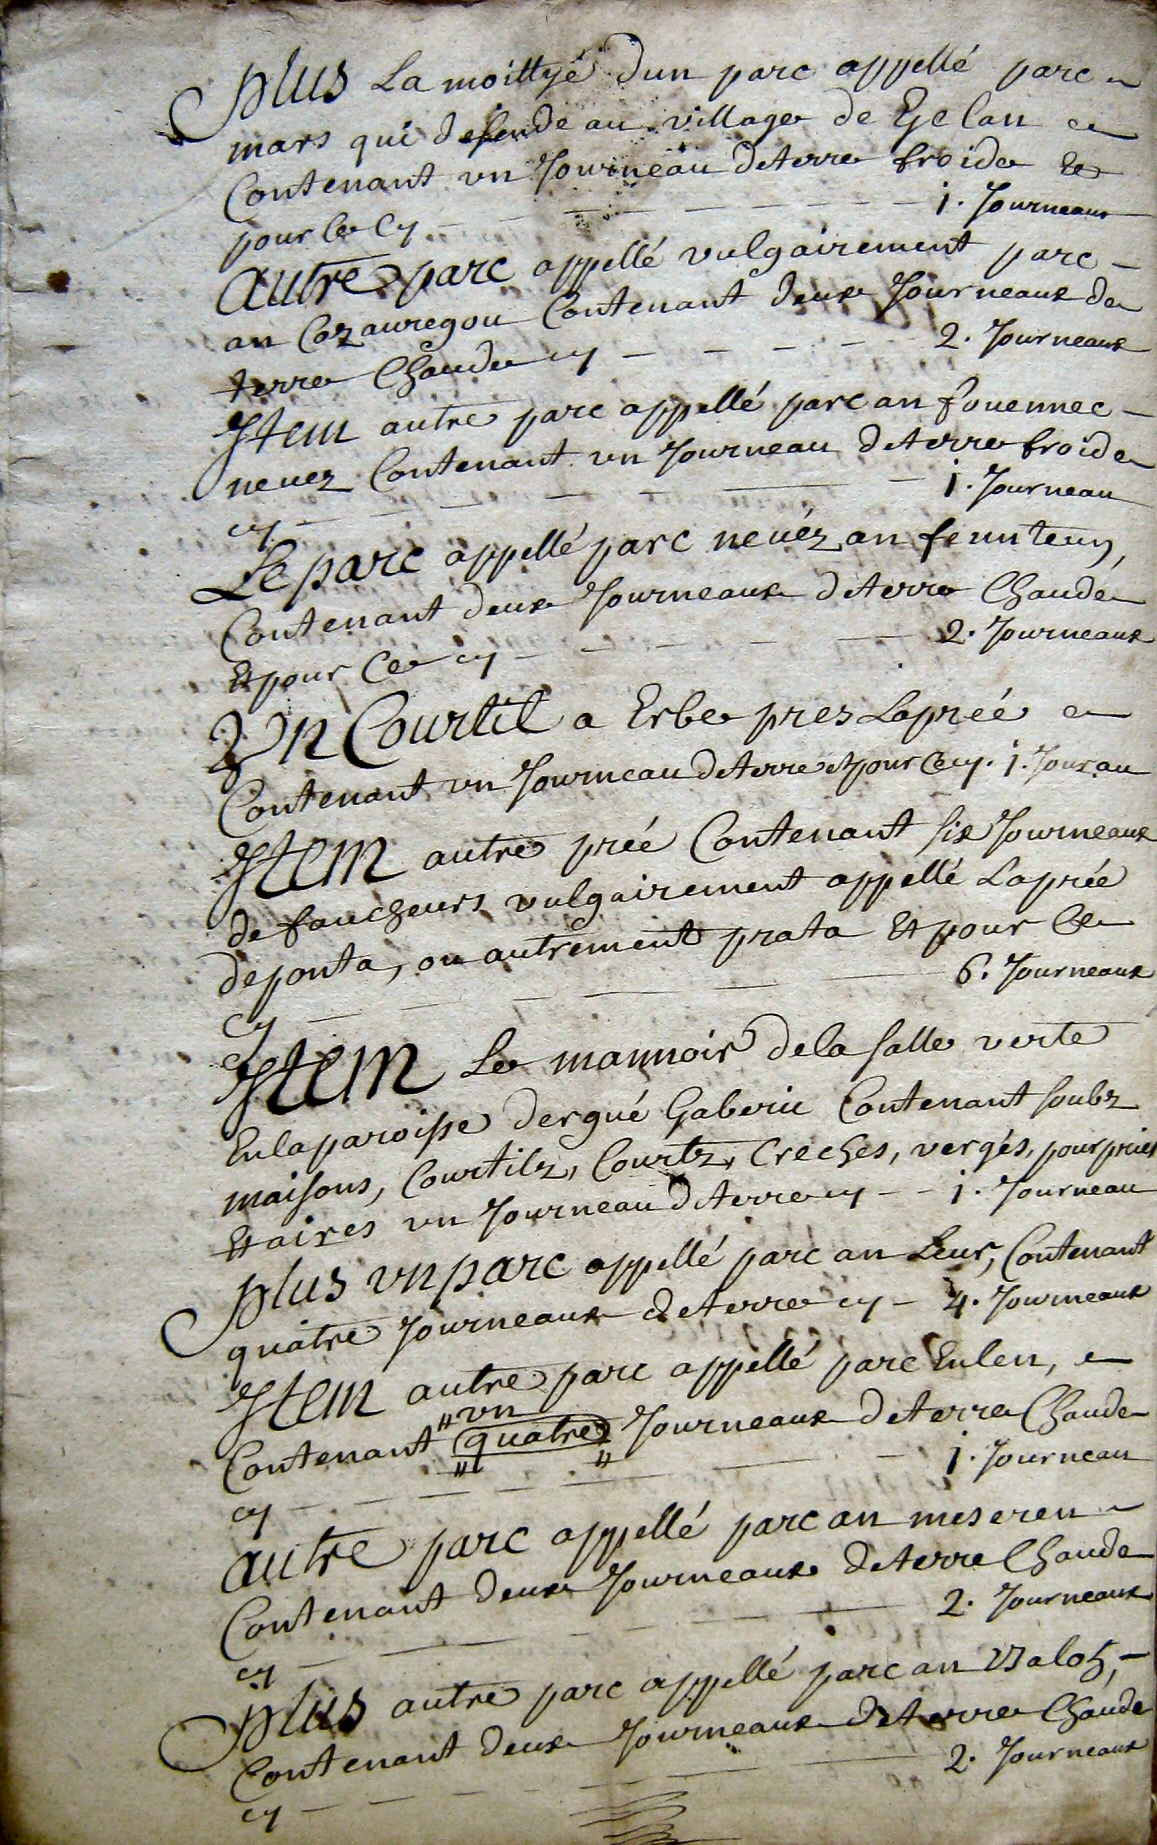 plus La moittye dun parc appellé parc
mars qui defende au village de
Contenant vn Journeau de terre froide Et
pour ce Cy 1. Journeau
autre parc appellé vulgairement parc
an Cozauregou Contenant deux Journeaux de
terre Chaude cy 2. Journeaux
Item autre parc appellé parc an fouennec
neuez Contenant vn Journeau de terre froide
cy 1. Journeau
Le parc appellé parc neuéz an feunteun,
Contenant deux Journeaux de terre Chaude
Et pour Ce cy 2. Journeaux
Vn Courtil a Erbe pres La préé
Contenant vn Journeau de terre et pour Ce cy. 1. Jour.au
Item autre préé Contenant six Journeaux
de faucheurs vulgairement appellé La préé
de ponta, ou autrement prata Et pour Ce
Cy 6. Journeaux
Item Le mannoir de la salle verte
En la paroisse dergué Gaberic Contenant soubz
maisons, Courtilz, Courtz, Creches, vergés, pourpries
Et aires vn Journeau de terre cy 1. Journeau
plus vn parc appellé parc an Leur, Contenant
quatre Journeaux de terre cy 4. Journeaux
Item autre parc appellé parc Eulen,
"vn
Contenant "quatre" Journeaux de terre Chaude
cy 1. Journeau
autre parc appellé parc an meseren
Contenant deux Journeaux de terre Chaude
cy 2. Journeaux
plus autre parc appellé parc an
Contenant deux Journeaux de terre Chaude
cy 2. Journeaux